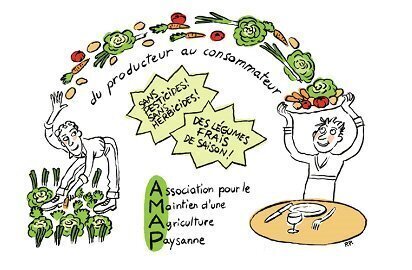 du producteur au consommateur
SANS
PESTICIDES!
SANS
HERBICIDES!
DES LÉGUMES
FRAIS
DE SAISON!
Association pour le
Maintien d'une
Agriculture
Paysanne
RK